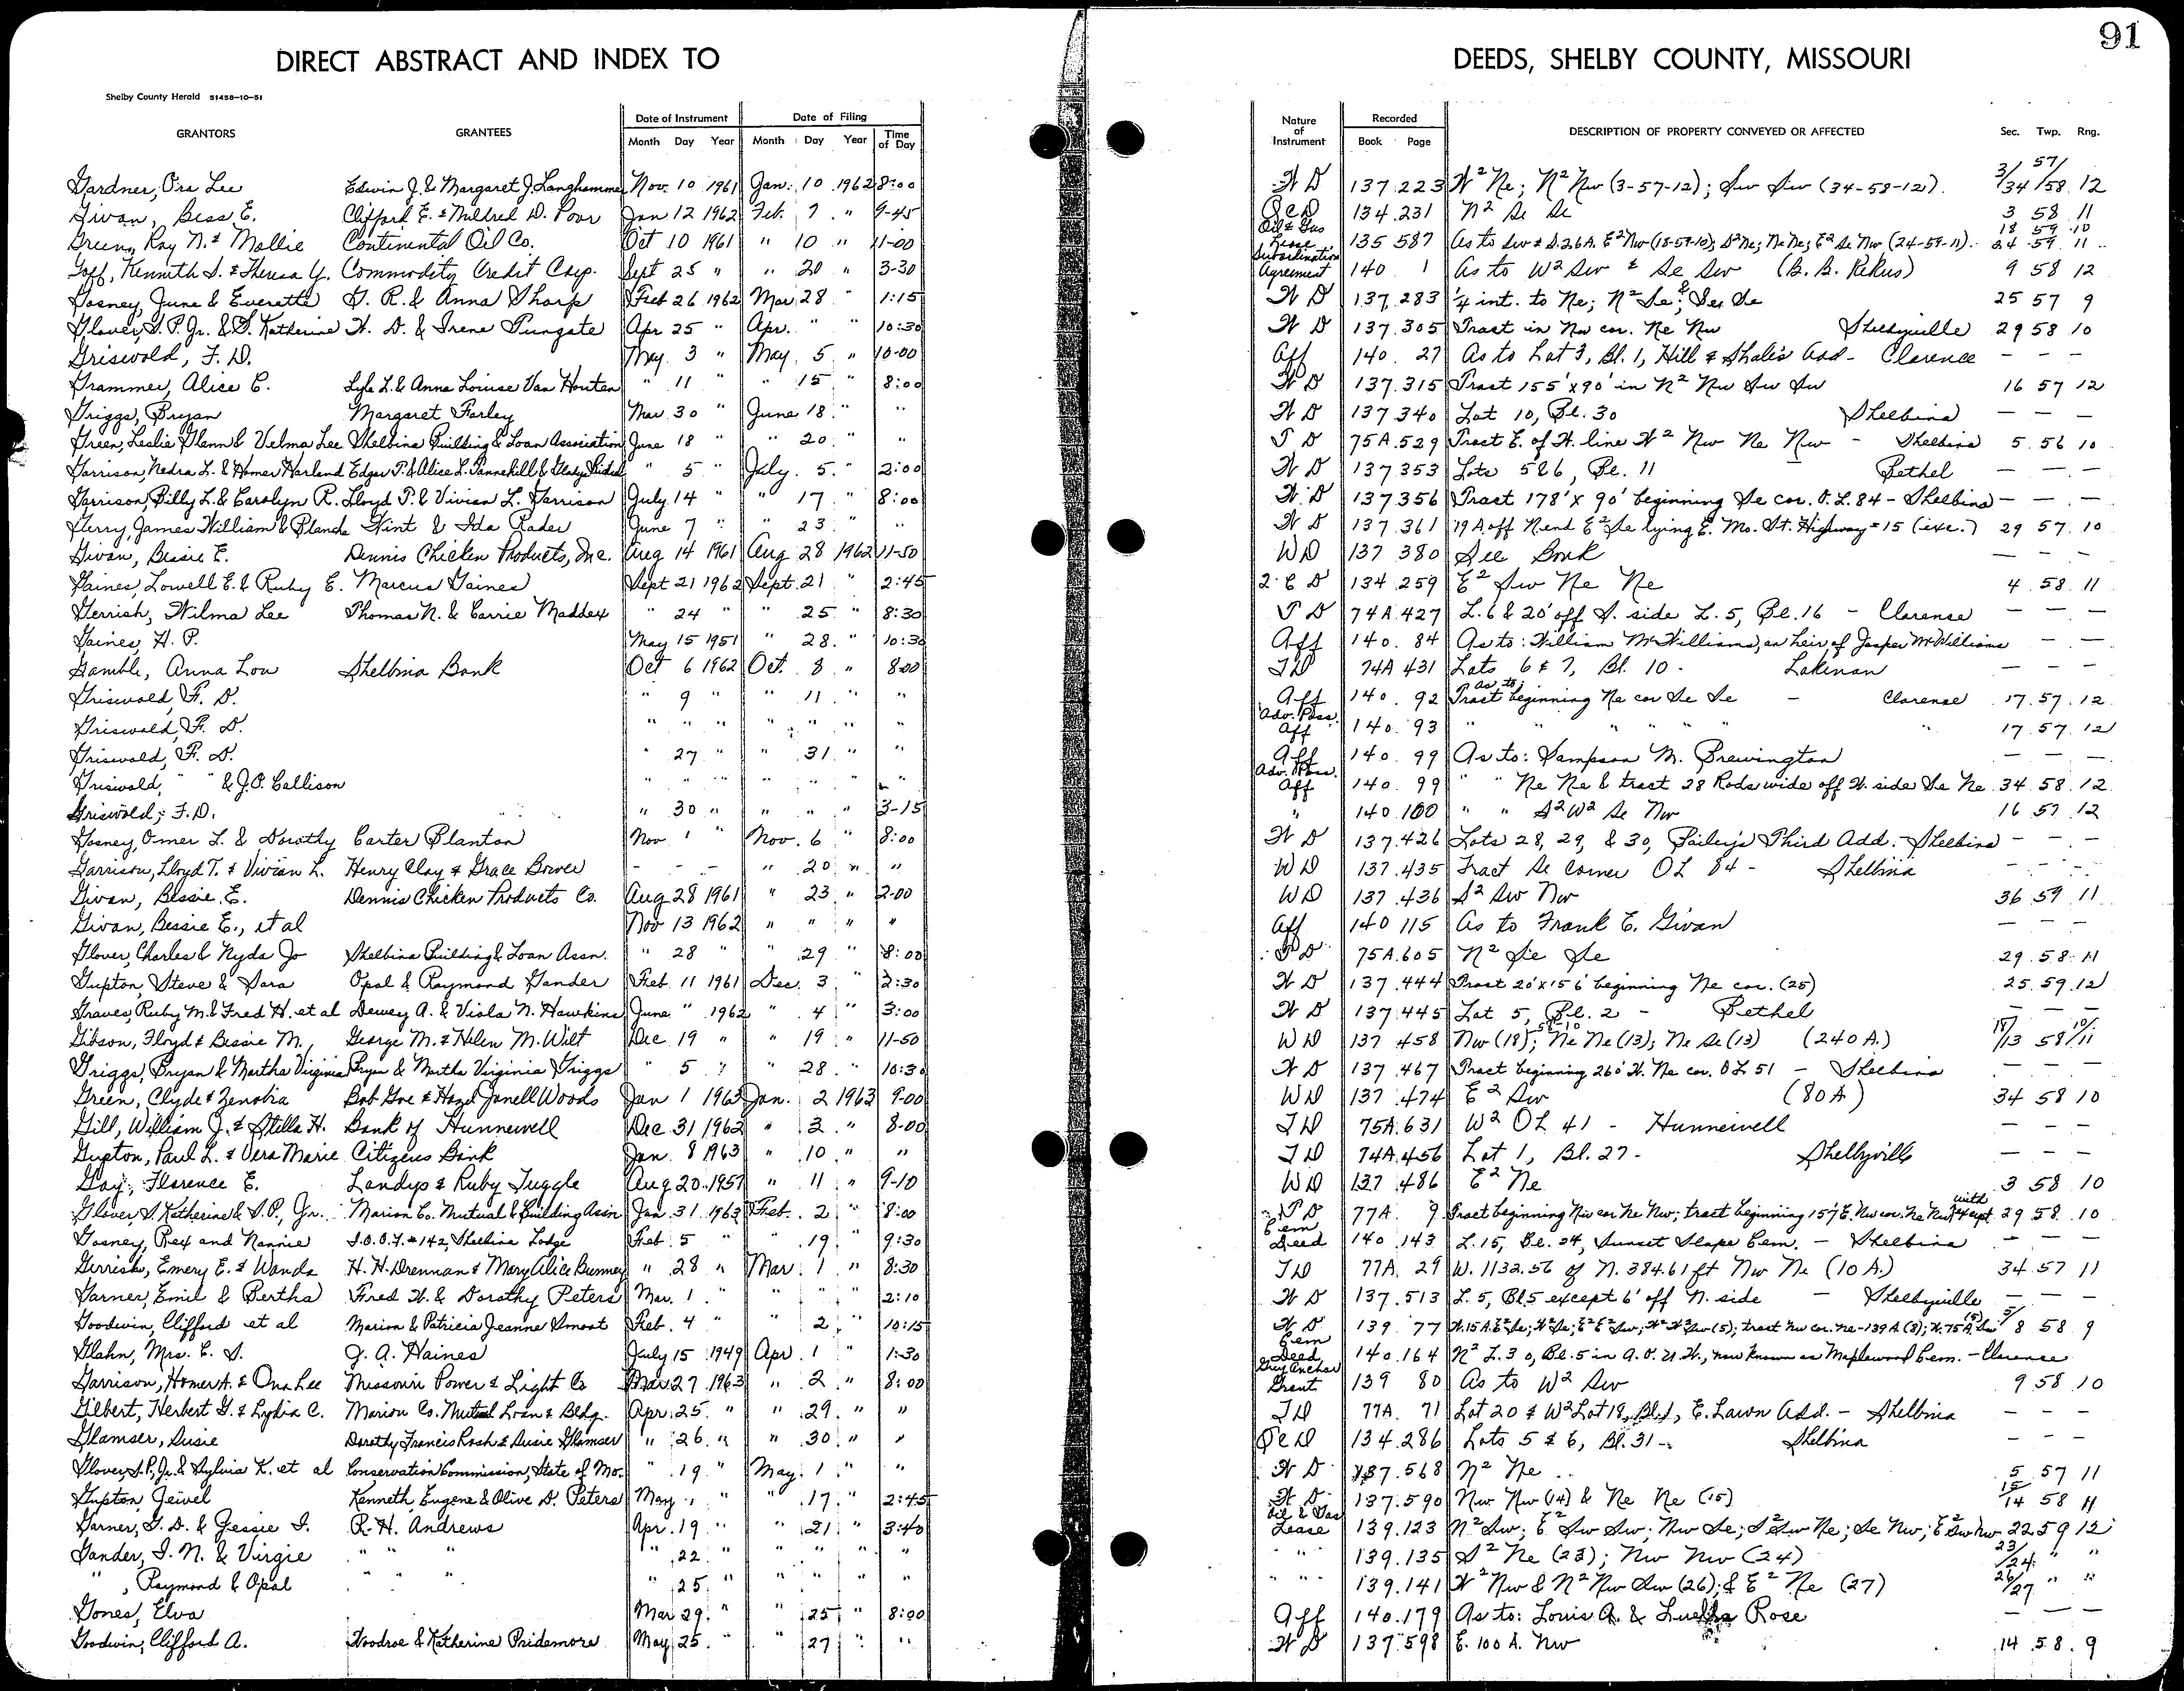 91
DIRECT ABSTRACT AND INDEX TO DEEDS, SHELBY COUNTY, MISSOURI
Shelby County Herald 51458-10-51
GRANTORS GRANTEES Date of Instrument Date of Filing Nature of Instrument Recorded DESCRIPTION OF PROPERTY CONVEYED OR AFFECTED Sec. Twp. Rng.
Month Day Year Month Day Year Time of Day Book Page
Gardner, Ora Lee Edwin J. & Margaret J. Langhammer Nov. 10 1961 Jan. 10 1962 8:00 W D 137 223 W² Ne; N² Nw (3-57-12); Sw Sw (34-58-12). 3/34 57/58 12
Givan, Bess E. Clifford E. & Mildred D. Poor Jan 12 1962 Feb. 7 " 9-45 Q C D 134 231 N² Se Se 3 58 11
Green, Ray N. & Mollie Continental Oil Co. Oct 10 1961 " 10 " 11-00 Oil & Gas Lease 135 587 As to Sw & S.26A. E² Nw (18-59-10); S² Ne; Ne Ne; E² Se Nw (24-59-11). 18 59 10 24 59 11
Goff, Kenneth S. & Theresa Y. Commodity Credit Corp. Sept 25 " " 20 " 3-30 Subordination Agreement 140 1 As to W² Sw & Se Sw (B. B. Rekus) 9 58 12
Gosney, June & Everette G. R. & Anna Sharp Feb 26 1962 Mar 28 " 1:15 W D 137 283 ¼ int. to Ne; N² Se; & Se Se 25 57 9
Glover, S. P. Jr. & S. Katherine W. D. & Irene Pungate Apr 25 " Apr. " " 10:30 W D 137 305 Tract in Nw cor. Ne Nw Shelbyville 29 58 10
Griswold, F. D. May 3 " May 5 " 10-00 Aff 140 27 As to Lot 3, Bl. 1, Hill & Shale's Add - Clarence - - -
Grammer, Alice C. Lyle L. & Anna Louise Van Houten " 11 " " 15 " 8:00 W D 137 315 Tract 155' x 90' in N² Nw Sw Sw 16 57 12
Griggs, Bryan Margaret Farley Mar. 30 " June 18 " " W D 137 340 Lot 10, Bl. 30 Shelbina - - -
Green, Leslie Glenn & Velma Lee Shelbina Building & Loan Association June 18 " " 20 " " T D 75A 529 Tract E. of W. line W² Nw Ne Nw - Shelbina 5 56 10
Garrison, Nedra L. & Homer Harland Edgar P. & Alice L. Pannehill & Gladys " 5 " July 5 " 2:00 W D 137 353 Lots 5 & 6, Bl. 11 Bethel - - -
Garrison, Billy L. & Carolyn R. Lloyd T. & Vivian L. Garrison July 14 " " 17 " 8:00 W D 137 356 Tract 178' x 90' beginning Se cor. O. L. 84 - Shelbina - - -
Gerry, James William & Blanche Wint & Ida Rader June 7 " " 23 " " W D 137 361 19 A. off N. end E² Se lying E. Mo. St. Highway #15 (exc.) 29 57 10
Givan, Bessie E. Dennis Chicken Products, Inc. Aug 14 1961 Aug 28 1962 11-50 W D 137 380 See Book - - -
Gaines, Lowell E. & Ruby E. Marcus Gaines Sept 21 1962 Sept. 21 " 2:45 Q C D 134 259 E² Sw Ne Ne 4 58 11
Gerrish, Wilma Lee Thomas N. & Carrie Maddex " 24 " " 25 " 8:30 T D 74A 427 L. 6 & 20' off S. side L. 5, Bl. 16 - Clarence - - -
Gaines, H. P. May 15 1951 " 28 " 10:30 Aff 140 84 As to: William McWilliams, an heir of Jasper McWilliams - -
Gamble, Anna Lou Shelbina Bank Oct 6 1962 Oct. 8 " 8:00 T D 74A 431 Lots 6 & 7, Bl. 10 - Lakenan - - -
Griswold, F. D. " 9 " " 11 " " Aff 140 92 as to: Tract beginning Ne cor Se Se - Clarence 17 57 12
Griswold, F. D. " " " " " " " Adv. Poss. Aff 140 93 " " " " " " 17 57 12
Griswold, F. D. " 27 " " 31 " " Aff 140 99 As to: Sampson M. Brewington - - -
Griswold, " " & J. O. Callison " " " " " " " Adv. Poss. Aff 140 99 " " Ne Ne & tract 28 Rods wide off W. side Se Ne 34 58 12
Griswold, F. D. " 30 " " " " 3-15 " 140 100 " " S² W² Se Nw 16 57 12
Gosney, Omer L. & Dorothy Carter Blanton Nov 1 " Nov. 6 " 8:00 W D 137 426 Lots 28, 29, & 30, Bailey's Third Add. - Shelbina - - -
Garrison, Lloyd T. & Vivian L. Henry Clay & Grace Bower - - - " 20 " " W D 137 435 Tract Se Corner OL 84 - Shelbina - - -
Givan, Bessie E. Dennis Chicken Products Co. Aug 28 1961 " 23 " 2:00 W D 137 436 S² Sw Nw 36 59 11
Givan, Bessie E., et al Nov 13 1962 " " " " Aff 140 115 As to Frank E. Givan - - -
Glover, Charles & Nyda Jo Shelbina Building & Loan Assn. " 28 " " 29 " 8:00 T D 75A 605 N² Se Se 29 58 11
Gupton, Steve & Sara Opal & Raymond Gander Feb. 11 1961 Dec. 3 " 2:30 W D 137 444 Tract 20' x 156' beginning Ne cor. (25) 25 59 12
Graves, Ruby M. & Fred H. et al Dewey A. & Viola N. Hawkins June " 1962 " 4 " 3:00 W D 137 445 Lot 5, Bl. 2 - Bethel - - -
Gibson, Floyd & Bessie M., George M. & Helen M. Wilt Dec 19 " " 19 " 11-50 W D 137 458 Nw (18); 58-10 Ne Ne (13); Ne Se (13) (240 A.) 18/13 58 10/11
Griggs, Bryan & Martha Virginia Bryan & Martha Virginia Griggs " 5 " " 28 " 10:30 W D 137 467 Tract beginning 260' W. Ne cor. OL 51 - Shelbina - - -
Green, Clyde & Zenobia Bob Goe & Hazel Janell Woods Jan 1 1963 Jan. 2 1963 9-00 W D 137 474 E² Sw (80 A) 34 58 10
Gill, William J. & Stella H. Bank of Hunnewell Dec 31 1962 " 3 " 8-00 T D 75A 631 W² OL 41 - Hunnewell - - -
Gupton, Paul L. & Vera Marie Citizens Bank Jan. 8 1963 " 10 " " T D 74A 456 Lot 1, Bl. 27 - Shelbyville - - -
Gay, Florence E. Landys & Ruby Tuggle Aug 20 1957 " 11 " 9-10 W D 137 486 E² Ne 3 58 10
Glover, S. Katherine & S. P., Jr. Marion Co. Mutual & Building Assn Jan. 31 1963 Feb. 2 " 8:00 T D 77A 9 Tract beginning Nw cor Ne Nw; tract beginning 157' E. Nw cor. Ne Nw, with except. 29 58 10
Gosney, Rex and Nannie I.O.O.F. #142, Shelbina Lodge Feb. 5 " " 19 " 9:30 Cem Deed 140 143 L. 15, Bl. 24, Sunset Slope Cem. - Shelbina - - -
Gerrish, Emery E. & Wanda H. H. Drennan & Mary Alice Bunney " 28 " Mar. 1 " 8:30 T D 77A 29 W. 1132.56 of N. 384.61 ft Nw Ne (10 A.) 34 57 11
Garner, Emil & Bertha Fred W. & Dorothy Peters Mar. 1 " " " " 2:10 W D 137 513 L. 5, Bl 5 except 6' off N. side - Shelbyville - - -
Goodwin, Clifford et al Marion & Patricia Jeanne Smoot Feb. 4 " " 2 " 10:15 W D 139 77 W. 15 A. E² Se; W² Se; E² E² Sw; W² W² Sw (5); tract Nw cor. Ne - 139 A. (8); W. 75 A. 5/8 58 9
Glahn, Mrs. C. S. J. A. Haines July 15 1949 Apr. 1 " 1:30 Cem Deed 140 164 N² L. 30, Bl. 5 in A. O. U. W., now known as Maplewood Cem. - Clarence
Garrison, Homer A. & Ona Lee Missouri Power & Light Co Mar 27 1963 " 2 " 8:00 Guy Anchor Grant 139 80 As to W² Sw 9 58 10
Gilbert, Herbert G. & Lydia C. Marion Co. Mutual Loan & Bldg. Apr. 25 " " 29 " " T D 77A 71 Lot 20 & W² Lot 19, Bl. 1, E. Lawn Add. - Shelbina - - -
Glamser, Susie Dorothy Francis Rosh & Susie Glamser " 26 " " 30 " " Q C D 134 286 Lots 5 & 6, Bl. 31 - Shelbina - - -
Glover, S. P., Jr. & Sylvia K. et al Conservation Commission, State of Mo. " 19 " May 1 " " W D 137 568 N² Ne 5 57 11
Gupton Jewel Kenneth Eugene & Olive D. Peters May 1 " " 17 " 2:45 W D 137 590 Nw Nw (14) & Ne Ne (15) 15/14 58 11
Garner, G. D. & Jessie I. R. H. Andrews Apr. 19 " " 21 " 3:40 Oil & Gas Lease 139 123 N² Sw; E² Sw Sw; Nw Se; S² Sw Ne; Se Nw; E² Sw Nw 22 59 12
Gander, I. N. & Virgie " " " " 22 " " " " " " " 139 135 S² Ne (23); Nw Nw (24) 23/24 " "
" , Raymond & Opal " " " " 25 " " " " " " " 139 141 W² Nw & N² Nw Sw (26); & E² Ne (27) 26/27 " "
Gones, Elva Mar 29 " " 25 " 8:00 Aff 140 179 As to: Louis A. & Luella Rose - - -
Goodwin, Clifford A. Woodroe & Katherine Pridemore May 25 " " 27 " " W D 137 598 E. 100 A. Nw 14 58 9